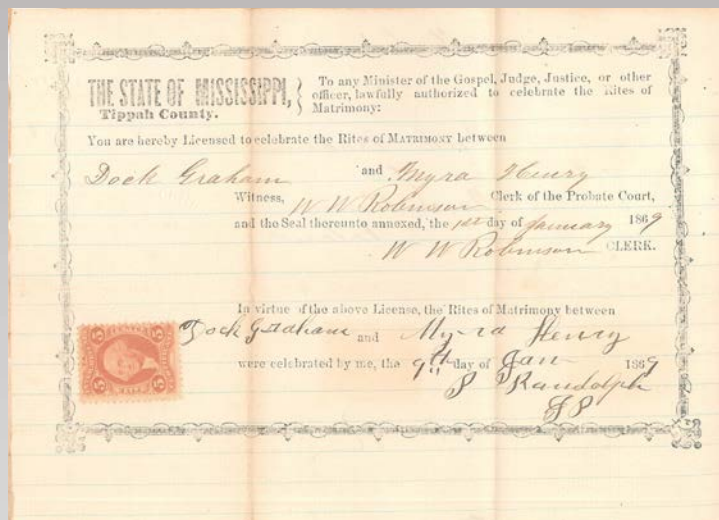 THE STATE OF MISSISSIPPI,
Tippah County.
To any Minister of the Gospel, Judge, Justice, or other
officer, lawfully authorized to celebrate the Rites of
Matrimony:
You are hereby Licensed to celebrate the Rites of MATRIMONY between
Dock Graham and Myra Henry
Witness, W W Robinson Clerk of the Probate Court,
and the Seal thereunto annexed, the 1st day of January 1869
W W Robinson CLERK.
In virtue of the above License, the Rites of Matrimony between
Dock Graham and Myra Henry
were celebrated by me, the 9th day of Jan 1869
S Randolph
J P
5 5
5 5